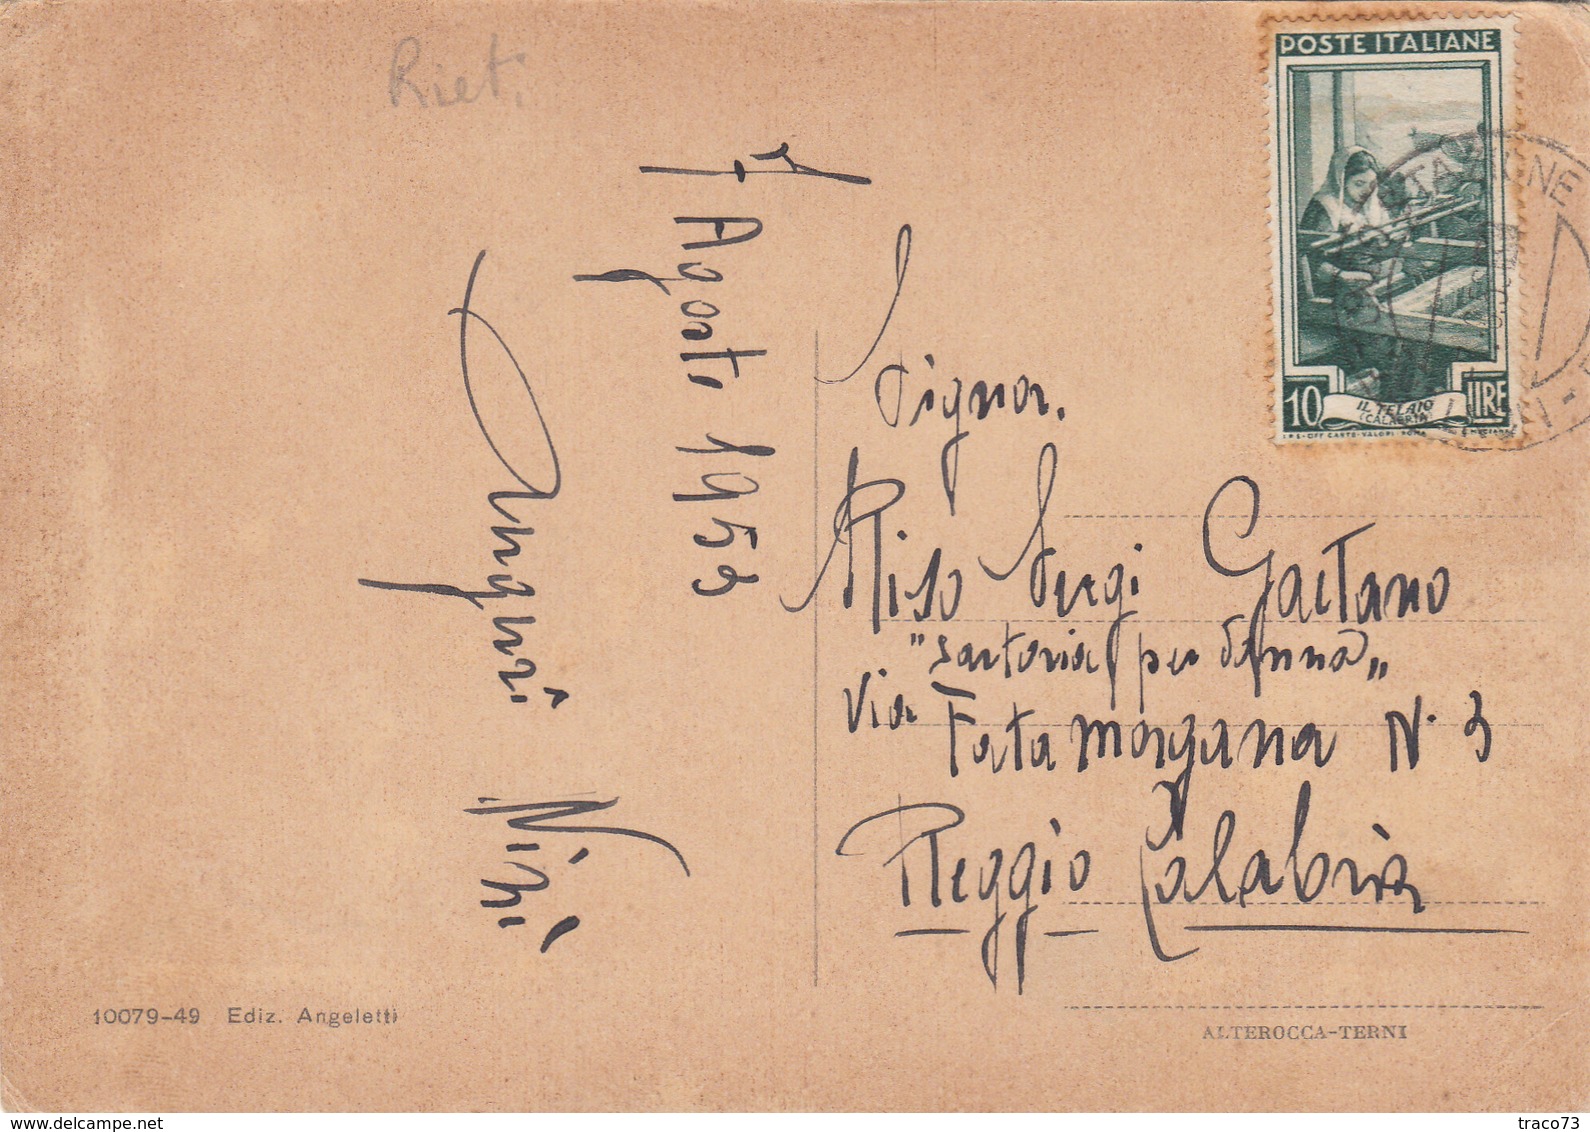 Rieti
POSTE ITALIANE
10 LIRE
IL TELAIO
(CALABRIA)
7 Agosto 1953
Auguri
Signor.
Sergi Gaetano
"sartoria per donna"
Via Fata Morgana N. 3
Reggio Calabria
10079-49 Ediz. Angeletti
ALTEROCCA-TERNI
www.delcampe.net
traco73